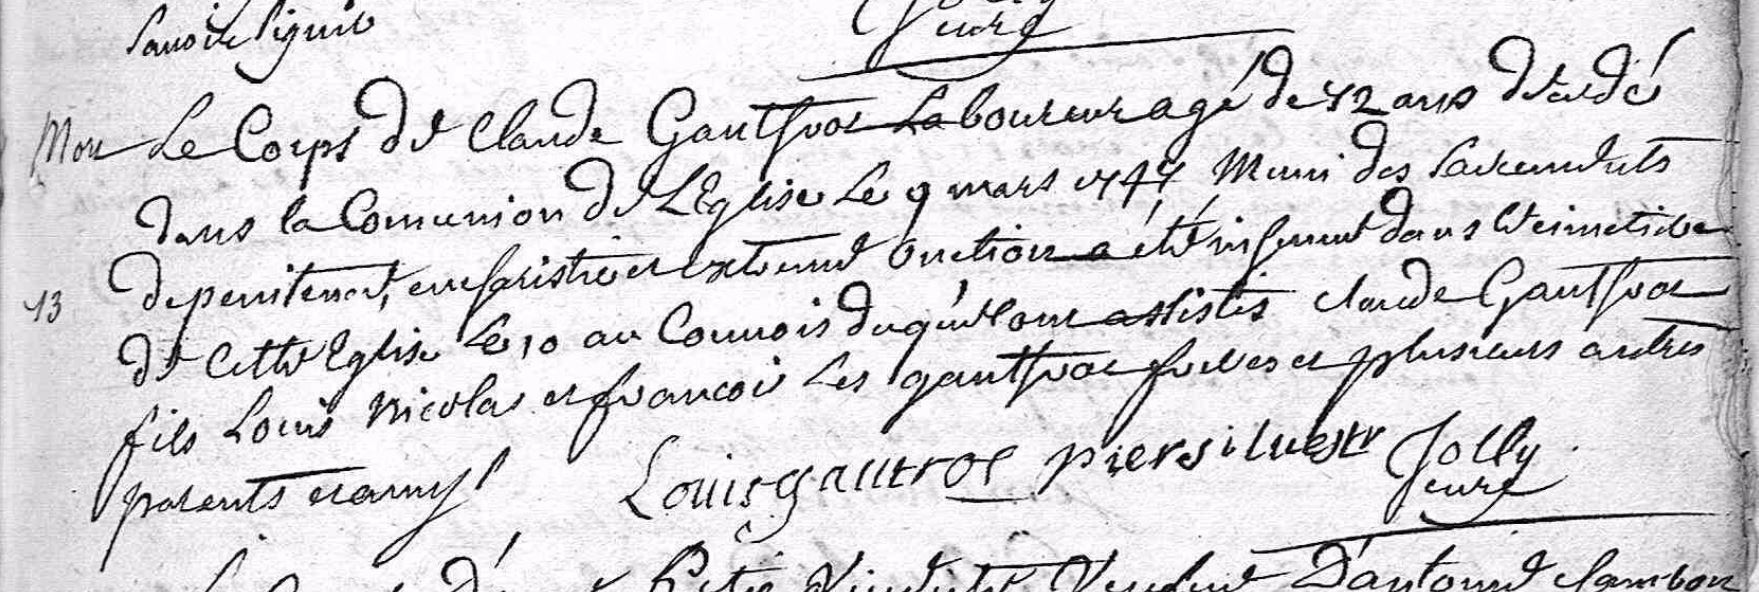 Savoir Signer
Curé
Mort Le Corps de Claude Gauthrot Laboureur agé de 72 ans decedé
dans la Comunion de L'Eglise Le 9 mars 1747 Muni des Sacrements
de penitence, eucharistie et extreme onction a été inhumé dans le cimetiere
13 de cette Eglise Le 10 au Convois duquel ont assistés claude Gauthrot
fils Louis Nicolas et francois Les gauthrot freres et plusieurs autres
parents et amys Louis gautrot pier silvestr Jolly
curé